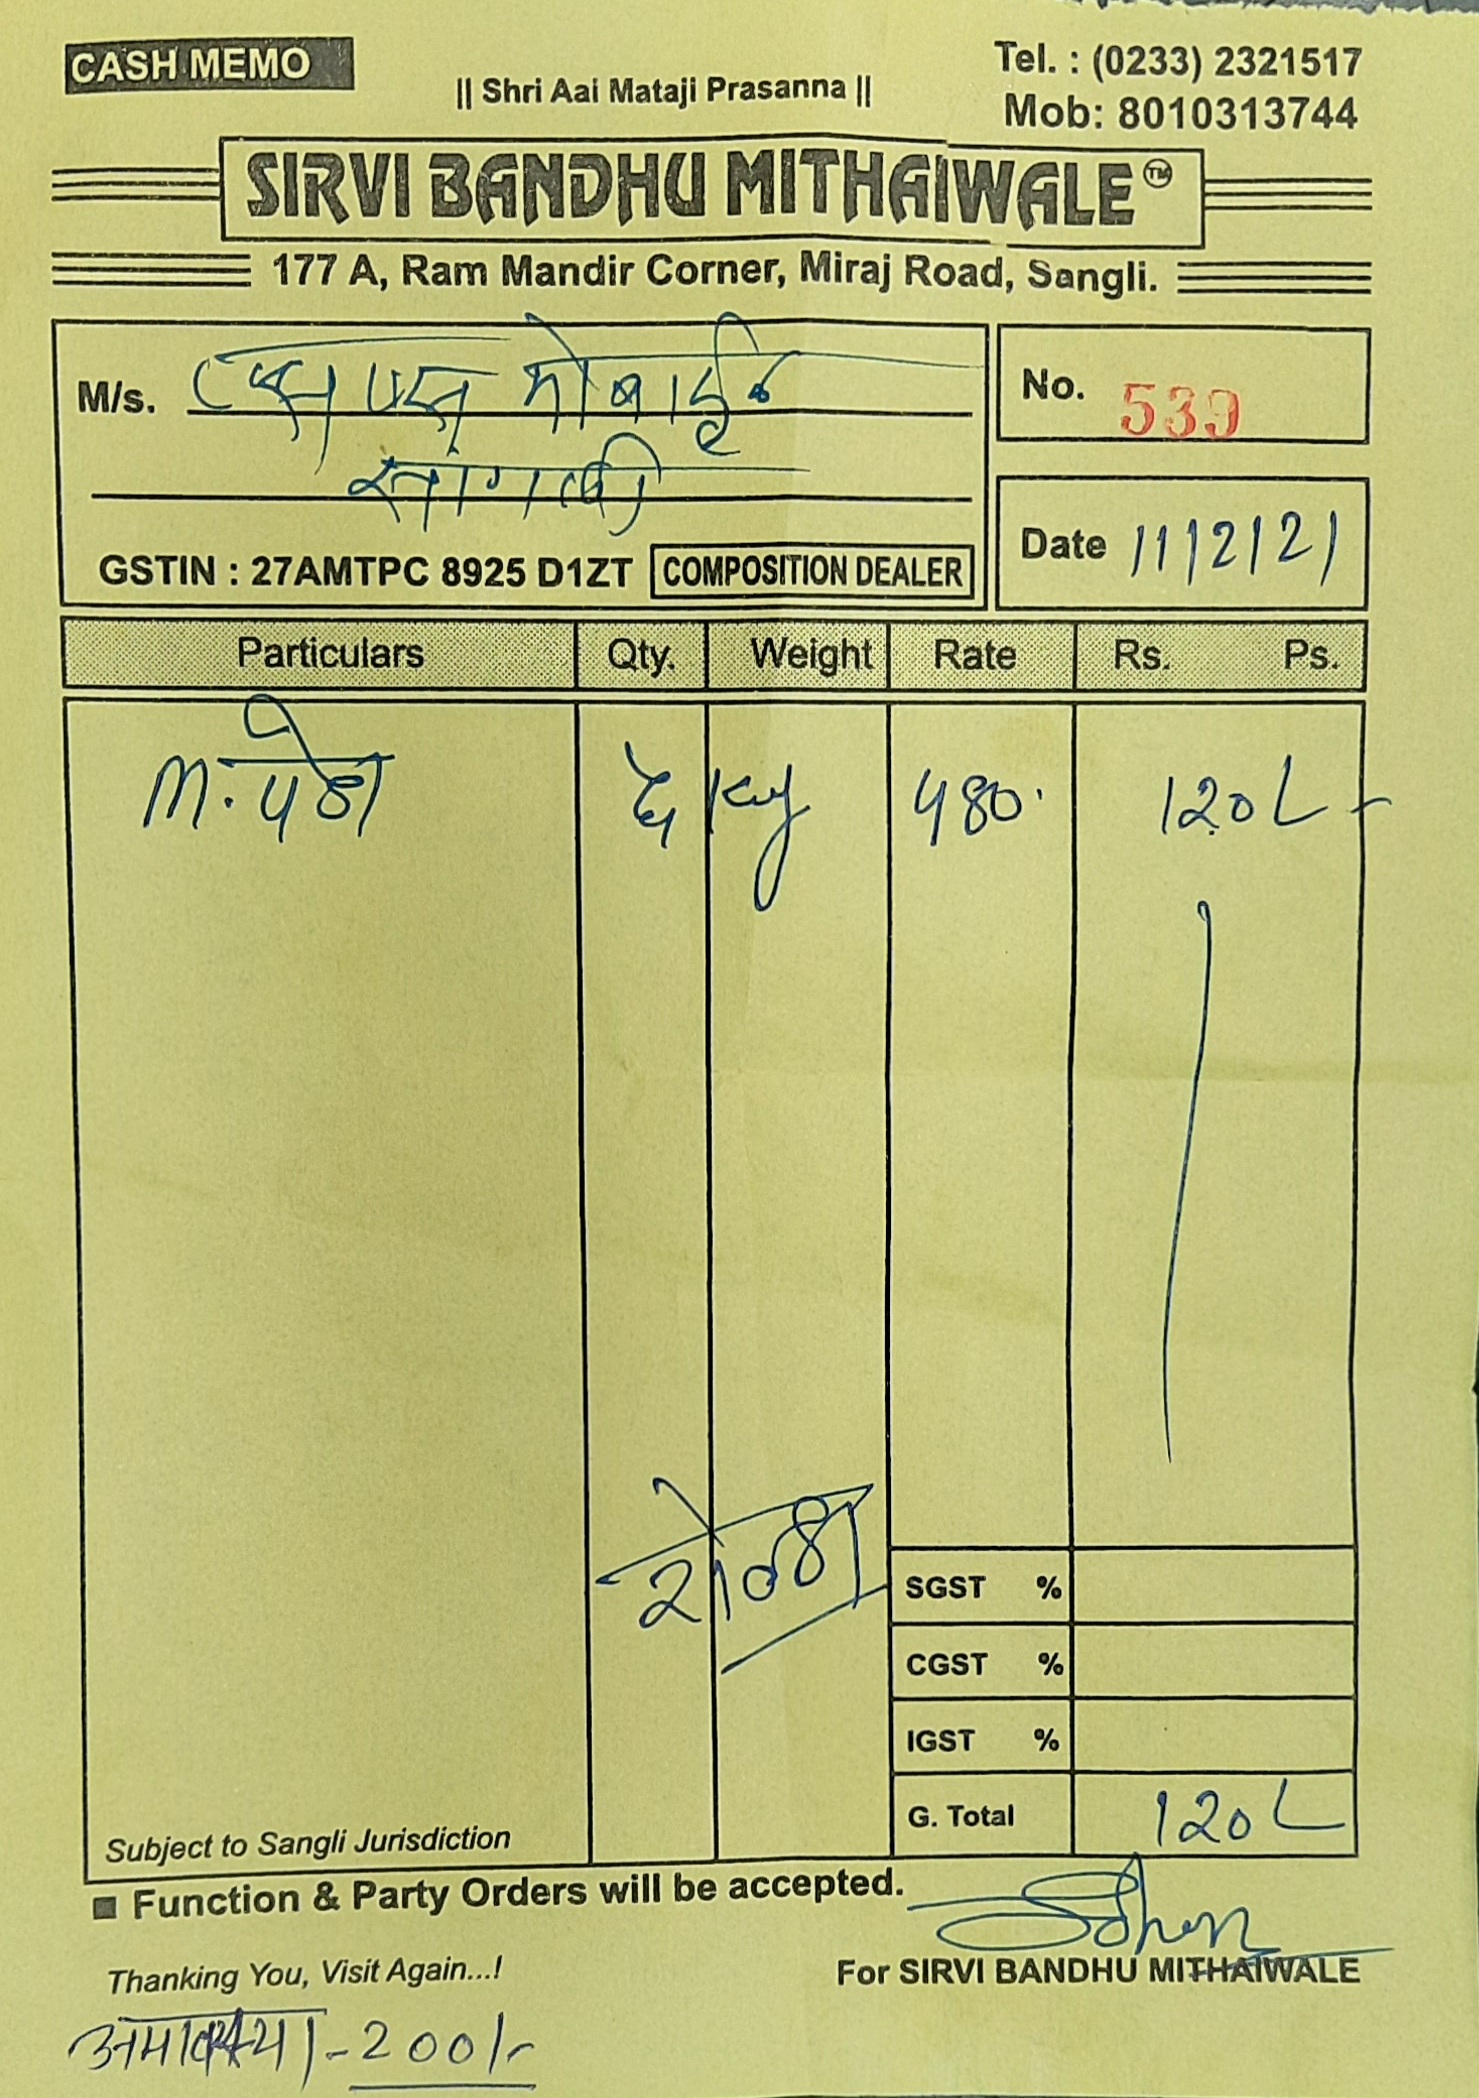 CASH MEMO
|| Shri Aai Mataji Prasanna ||
Tel. : (0233) 2321517
Mob: 8010313744
SIRVI BANDHU MITHAIWALE TM
177 A, Ram Mandir Corner, Miraj Road, Sangli.
M/s. मोबाईल
सांगली
No. 539
GSTIN : 27AMTPC 8925 D1ZT COMPOSITION DEALER
Date 11/2/21
Particulars Qty. Weight Rate Rs. Ps.
m. पेढा Kg 480. 120/-
रोख
SGST %
CGST %
IGST %
G. Total 120/-
Subject to Sangli Jurisdiction
■ Function & Party Orders will be accepted.
Thanking You, Visit Again...!
For SIRVI BANDHU MITHAIWALE
अमावस्या - 200/-